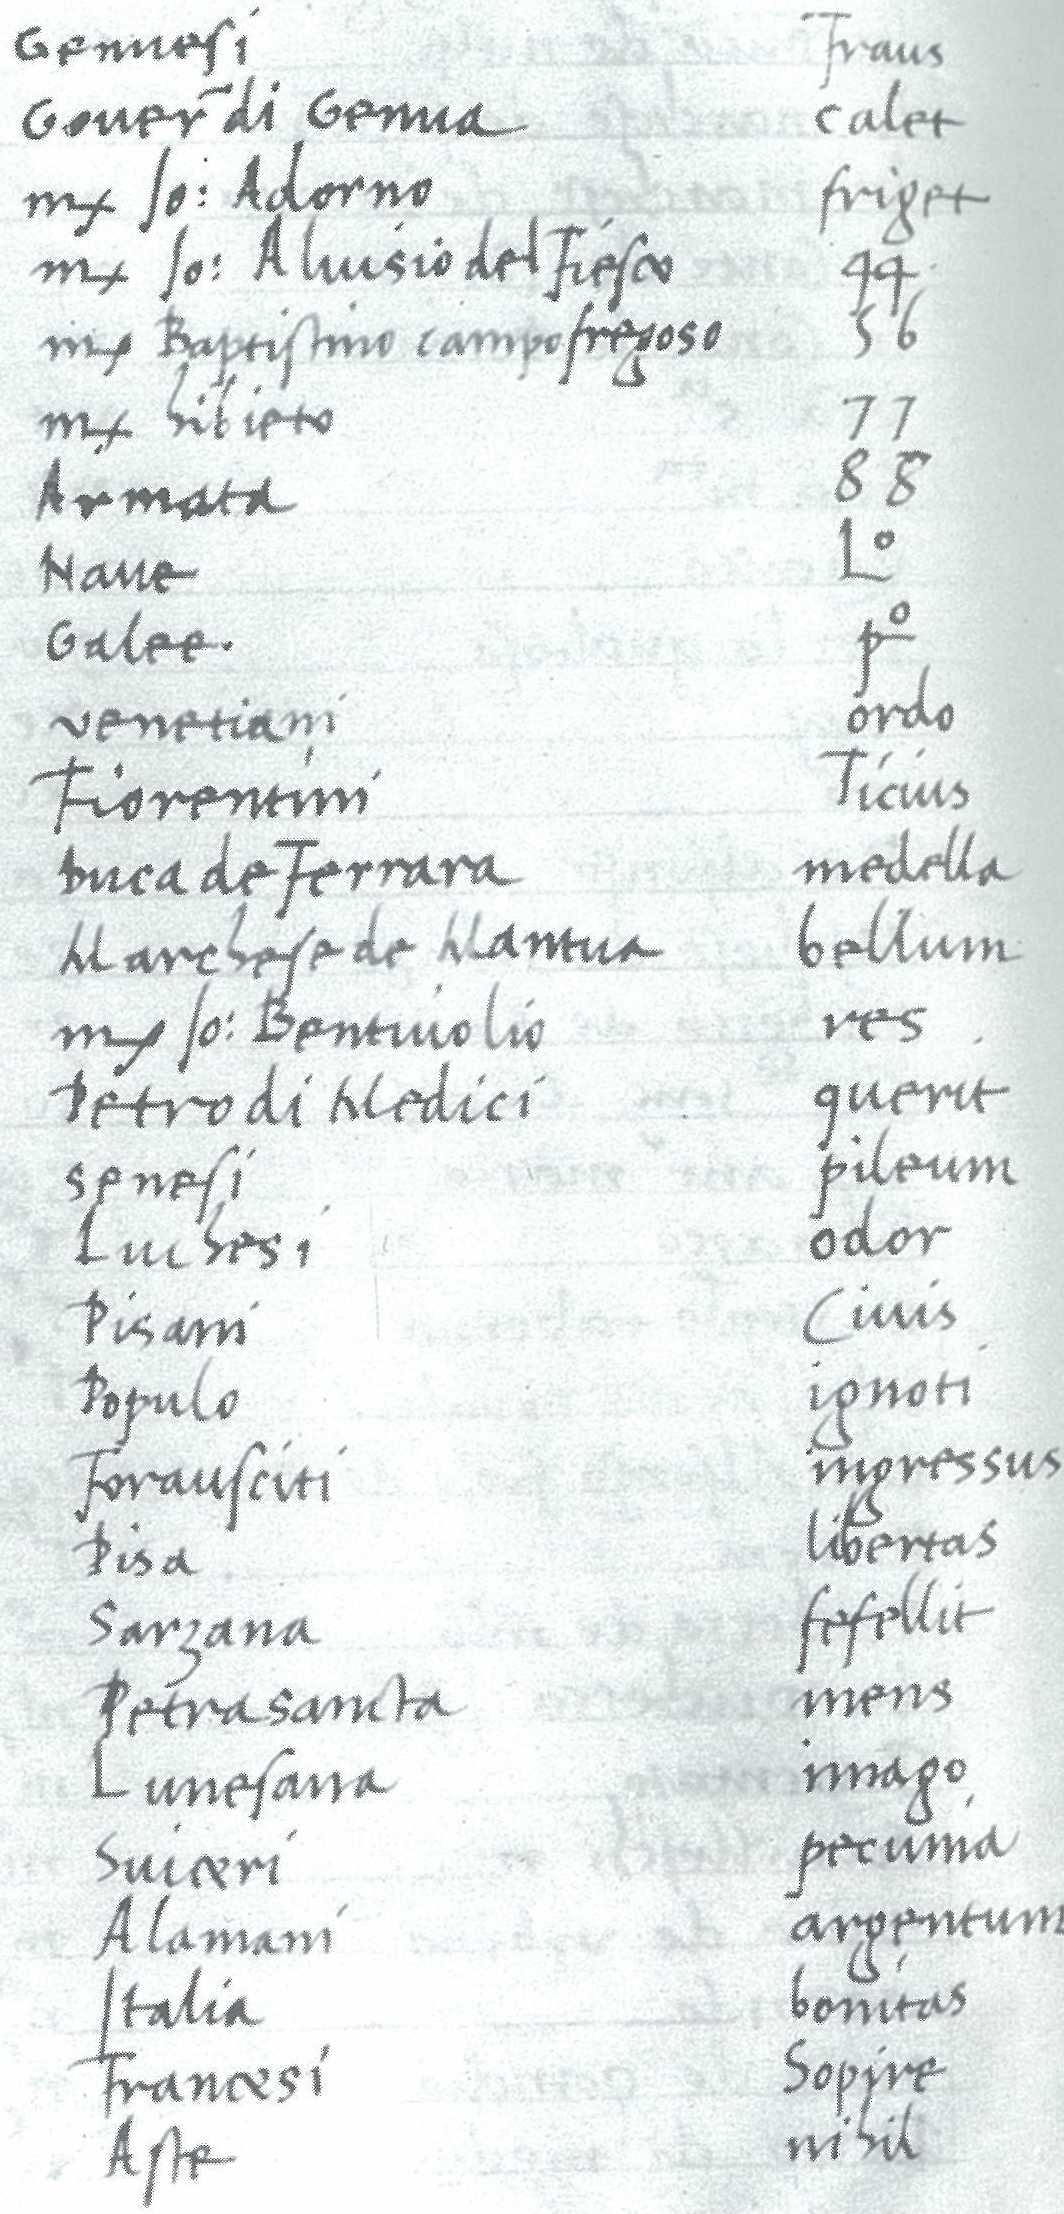 Genuesi Fraus
Gouer~ di Genua calet
mx Jo: Adorno friget
mx Jo: Aluisio del Fiesco 99
mx Baptistino campo fregoso 56
mx hibieto 77
Armata 88
Naue Lº
Galee. pº
venetiani ordo
Fiorentini Ticius
Duca de Ferrara medella
Marchese de Mantua bellum
mx Jo: Bentiuolio res
Petro di Medici querit
senesi pileum
Luchesi odor
Pisani Ciuis
Populo ignoti
Forausciti ingressus
Pisa libertas
Sarzana fefellit
Petrasancta mens
Lunesana imago
Suiceri pecunia
Alamani argentum
Italia bonitas
Francesi Sopire
Aste nihil